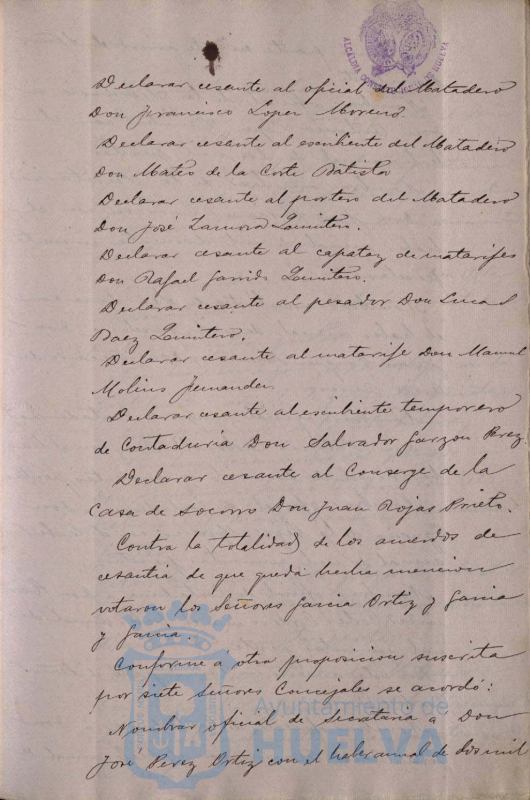 ALCALDIA CONSTITUCIONAL DE HUELVA
Declarar cesante al oficial del Matadero
Don Francisco Lopez Moreno
Declarar cesante al escribiente del Matadero
Don Mateo de la Corte Batista
Declarar cesante al portero del Matadero
Don José Zamora Quintero.
Declarar cesante al capataz de matarifes
Don Rafael Garrido Quintero.
Declarar cesante al pesador Don Lucas
Baez Quintero.
Declarar cesante al matarife Don Manuel
Molins Fernandez
Declarar cesante al escribiente temporero
de Contaduria Don Salvador Garzon Perez.
Declarar cesante al Conserge de la
Casa de Socorro Don Juan Rojas Prieto.
Contra la totalidad de los acuerdos de
cesantia de que queda hecha mencion
votaron los Señores Garcia Ortiz y Garcia
y Garcia.
Conforme á otra proposicion suscrita
por siete Señores Concejales se acordó:
Nombrar oficial de Secretaria a Don
José Perez Ortiz con el haber anual de dos mil
Ayuntamiento de
HUELVA